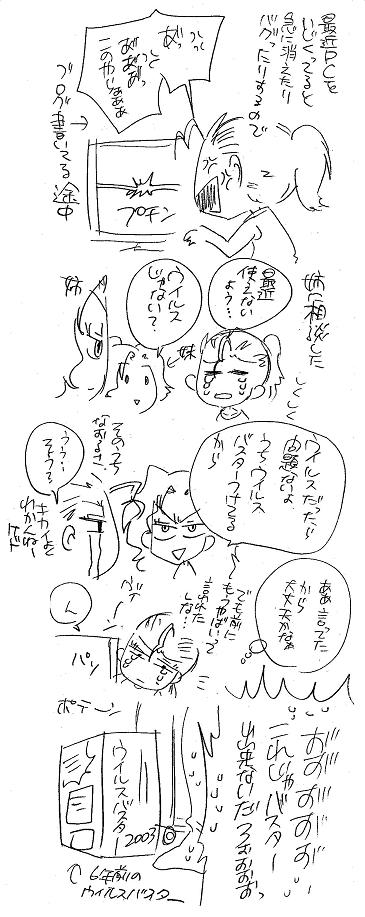 最近PCを
いじくってると
急に消えたり
バグったりするので
あ゛っ
あ゛あ゛あ゛っ
このやじゃあぁ
プチン
ブログ書いてる途中
姉に相談した
しくしく
最近
使えない
よう…
ウイルス
じゃない?
妹
姉
ウイルスだったら
問題ないよ
うちウイルス
バスターつけてる
から
そのうち
なおるさ、
うう…
そう?
キカイよく
わかんねー
ケド
ああ言ってた
から
大丈夫かなぁ
でも前に
もうやばいって
言われた
しな…
ん
パソ
ポテーン
お゛お゛お゛お゛お゛
これじゃバスター
出来ないだろおぉぉぉっ
ウイルス
バスター
2003
6年前の
ウイルスバスター